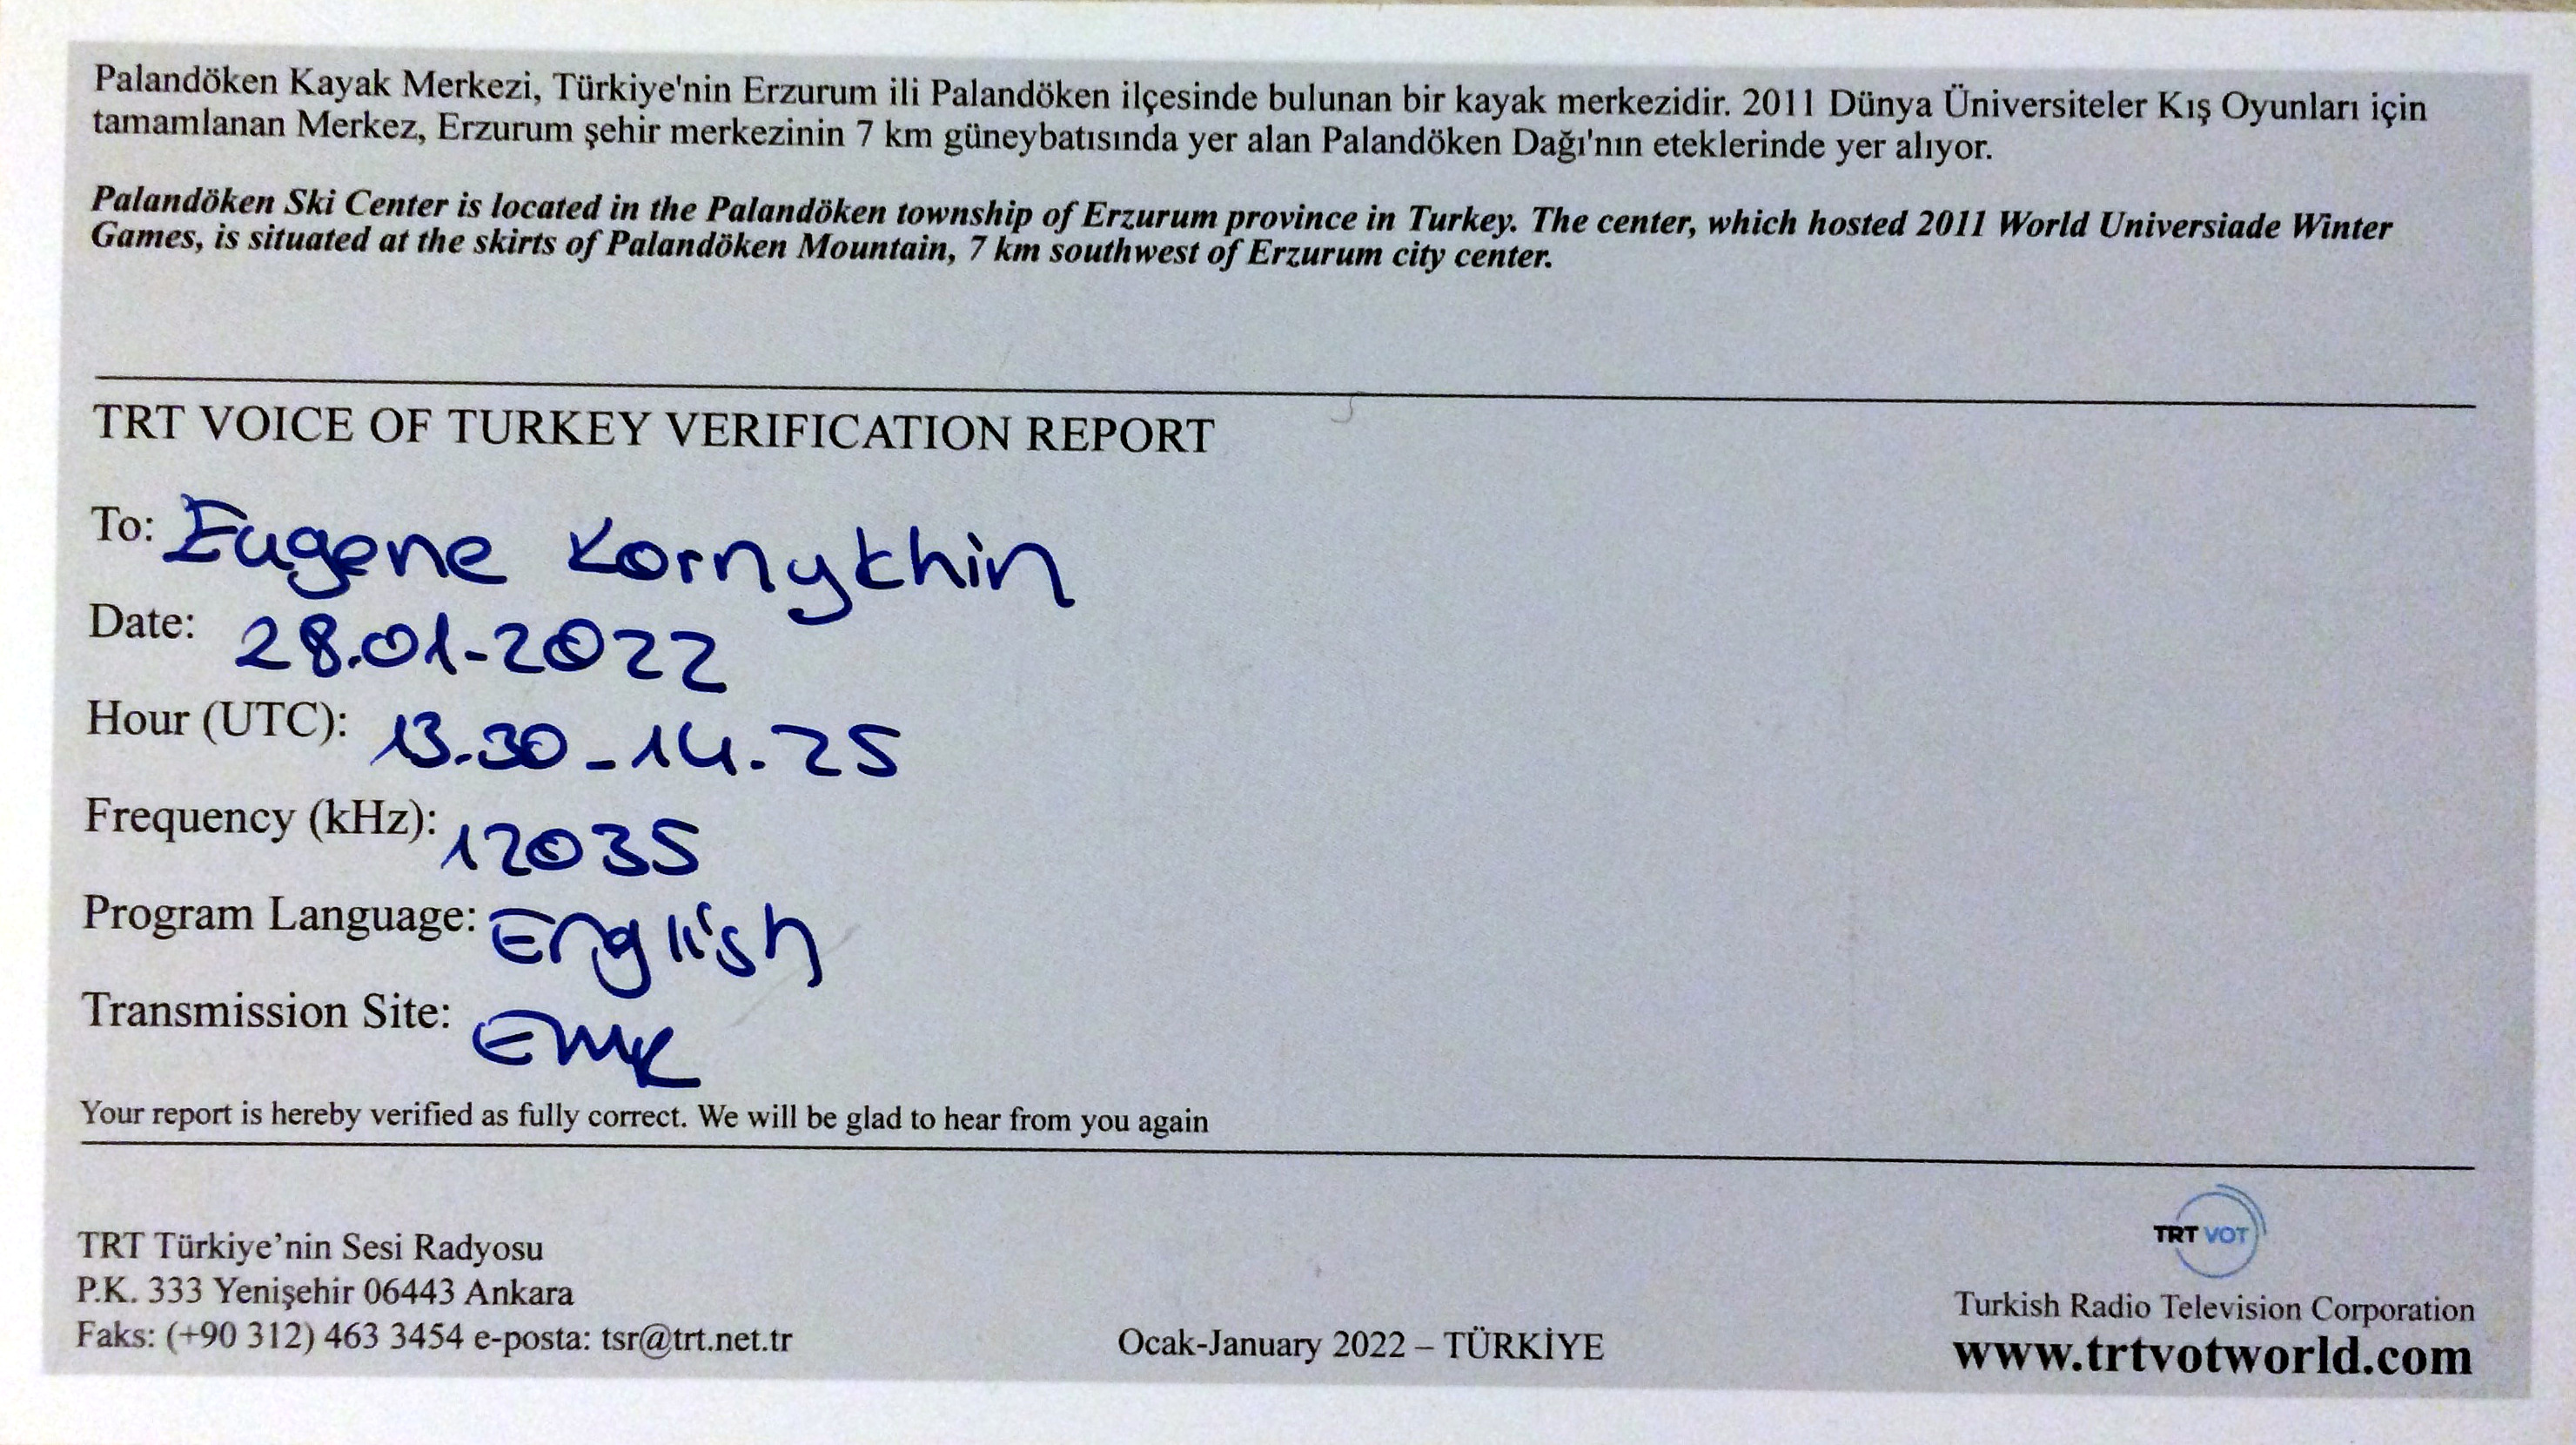 Palandöken Kayak Merkezi, Türkiye'nin Erzurum ili Palandöken ilçesinde bulunan bir kayak merkezidir. 2011 Dünya Üniversiteler Kış Oyunları için
tamamlanan Merkez, Erzurum şehir merkezinin 7 km güneybatısında yer alan Palandöken Dağı'nın eteklerinde yer alıyor.
Palandöken Ski Center is located in the Palandöken township of Erzurum province in Turkey. The center, which hosted 2011 World Universiade Winter
Games, is situated at the skirts of Palandöken Mountain, 7 km southwest of Erzurum city center.
TRT VOICE OF TURKEY VERIFICATION REPORT
To: Eugene Kornykhin
Date: 28.01-2022
Hour (UTC): 13.30-14.25
Frequency (kHz): 12035
Program Language: English
Transmission Site: EMR
Your report is hereby verified as fully correct. We will be glad to hear from you again
TRT Türkiye’nin Sesi Radyosu
P.K. 333 Yenişehir 06443 Ankara
Faks: (+90 312) 463 3454 e-posta: tsr@trt.net.tr
Ocak-January 2022 – TÜRKİYE
TRT VOT
Turkish Radio Television Corporation
www.trtvotworld.com